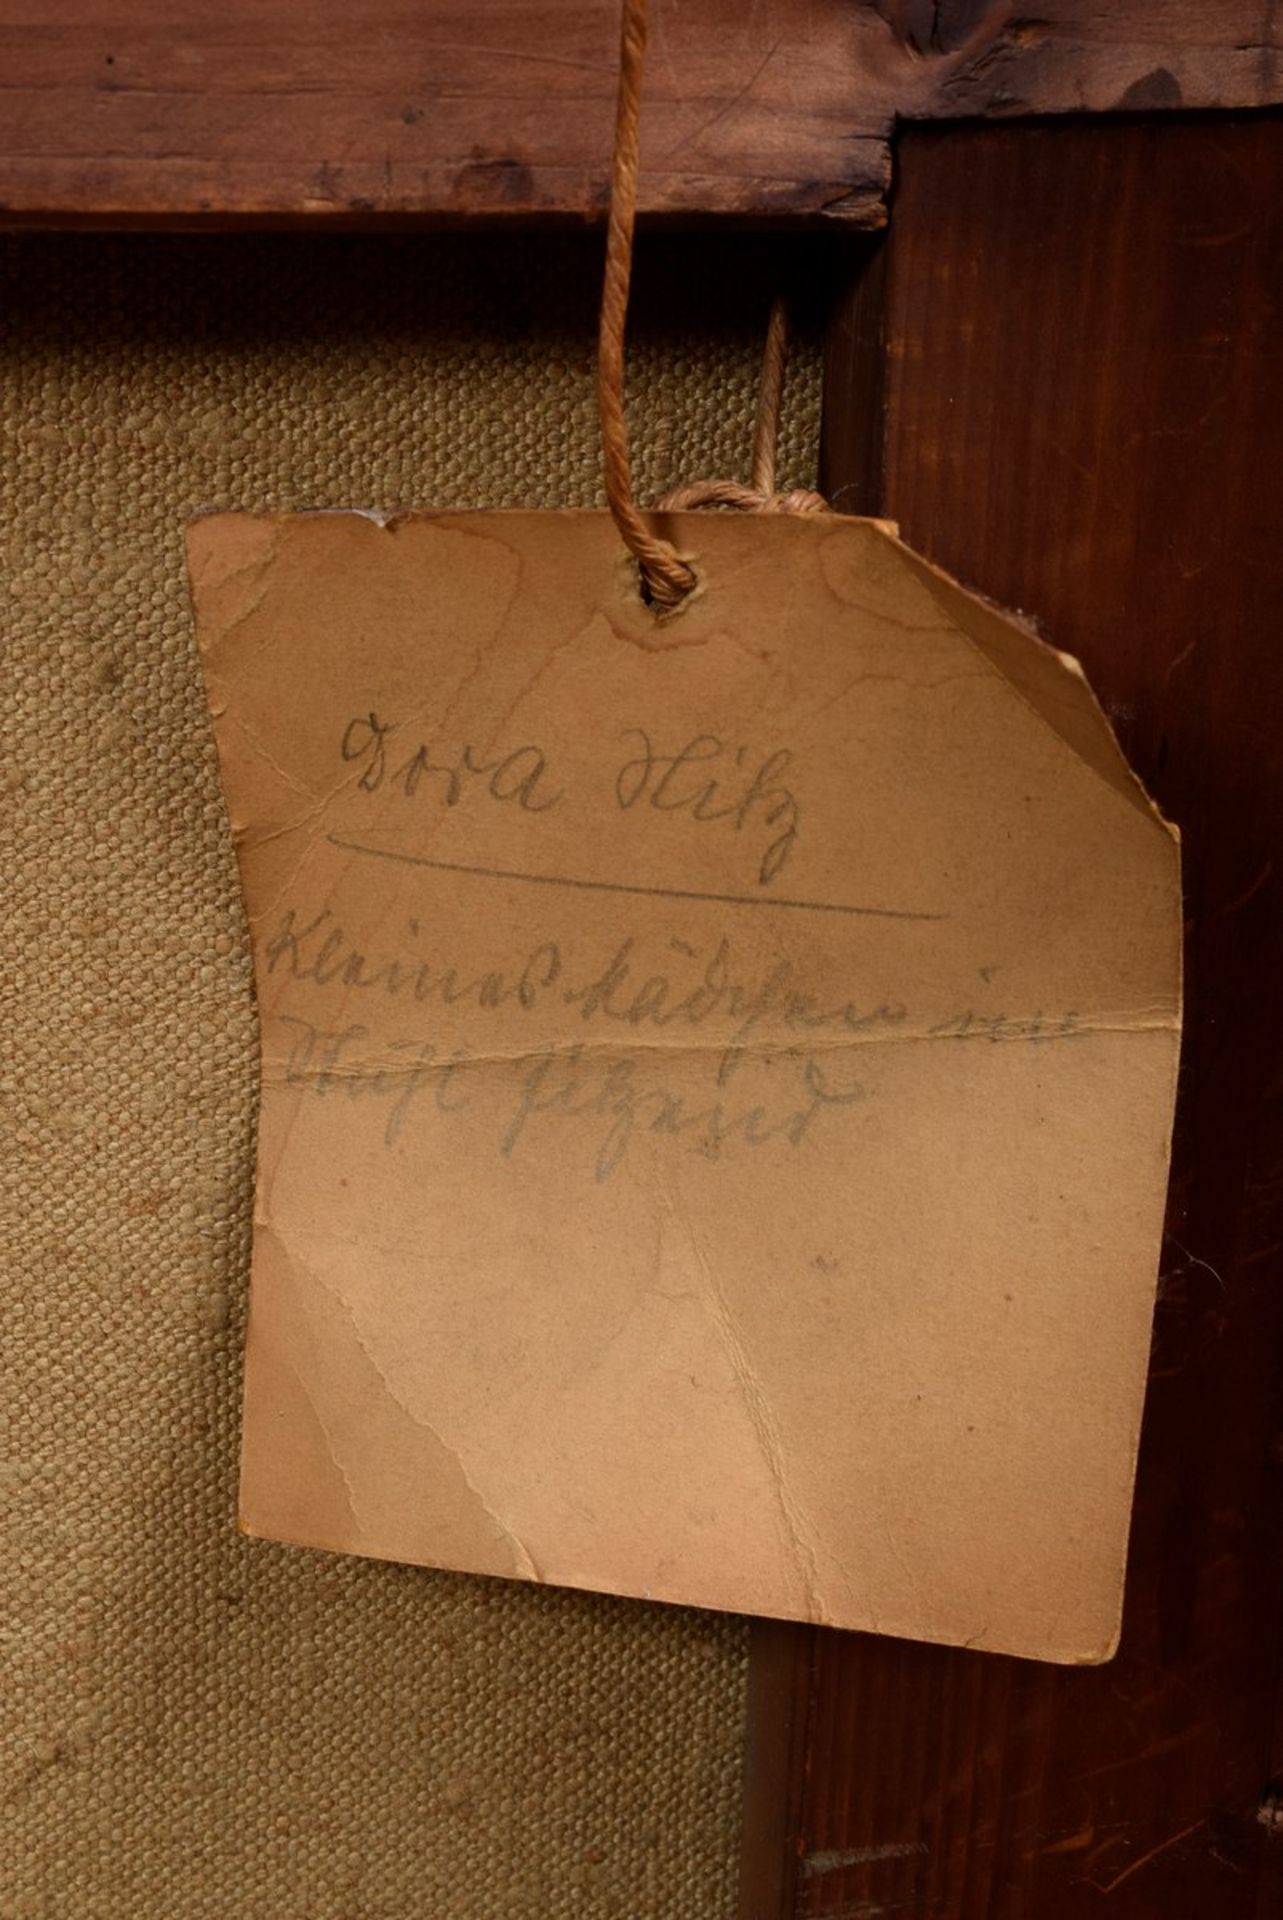 Dora Hitz
Kleines Mädchen im
Stuhl sitzend